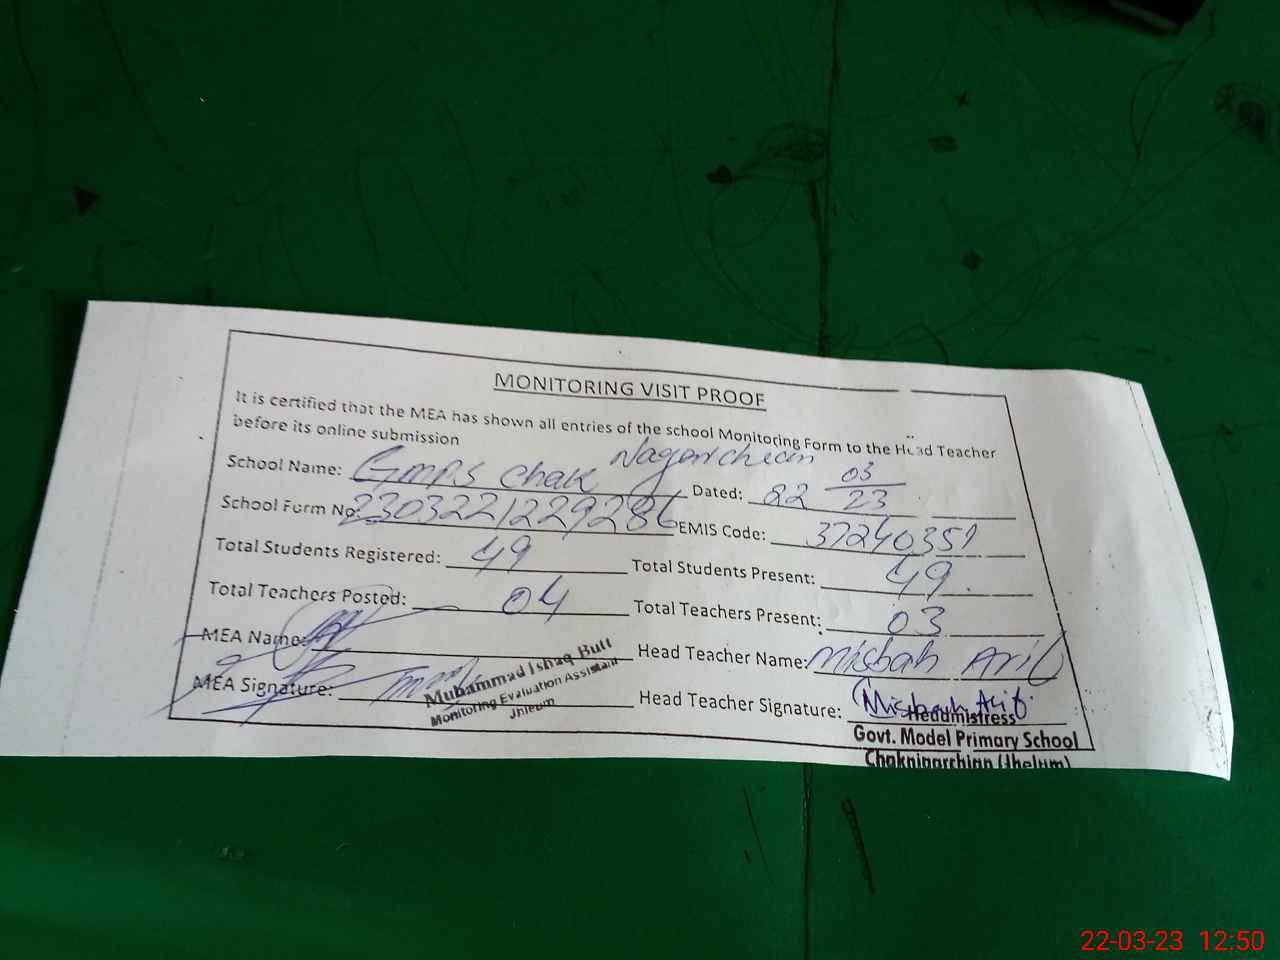 MONITORING VISIT PROOF
It is certified that the MEA has shown all entries of the school Monitoring Form to the Head Teacher
before its online submission
School Name: GMPS Chak Nagarchian Dated: 22 03/23
School Form No: 2303221229286 EMIS Code: 37240351
Total Students Registered: 49 Total Students Present: 49
Total Teachers Posted: 04 Total Teachers Present: 03
MEA Name: Head Teacher Name: Misbah Arif
MEA Signature: Head Teacher Signature: Misbah Arif
Muhammad Ishaq Butt
Monitoring Evaluation Assistant
Jhleum
Headmistress
Govt. Model Primary School
(Jhelum)
22-03-23 12:50